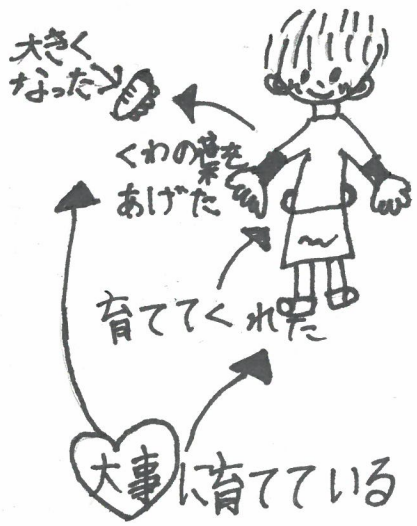 大きく
なった
くわの葉を
あげた
育ててくれた
大事に育てている